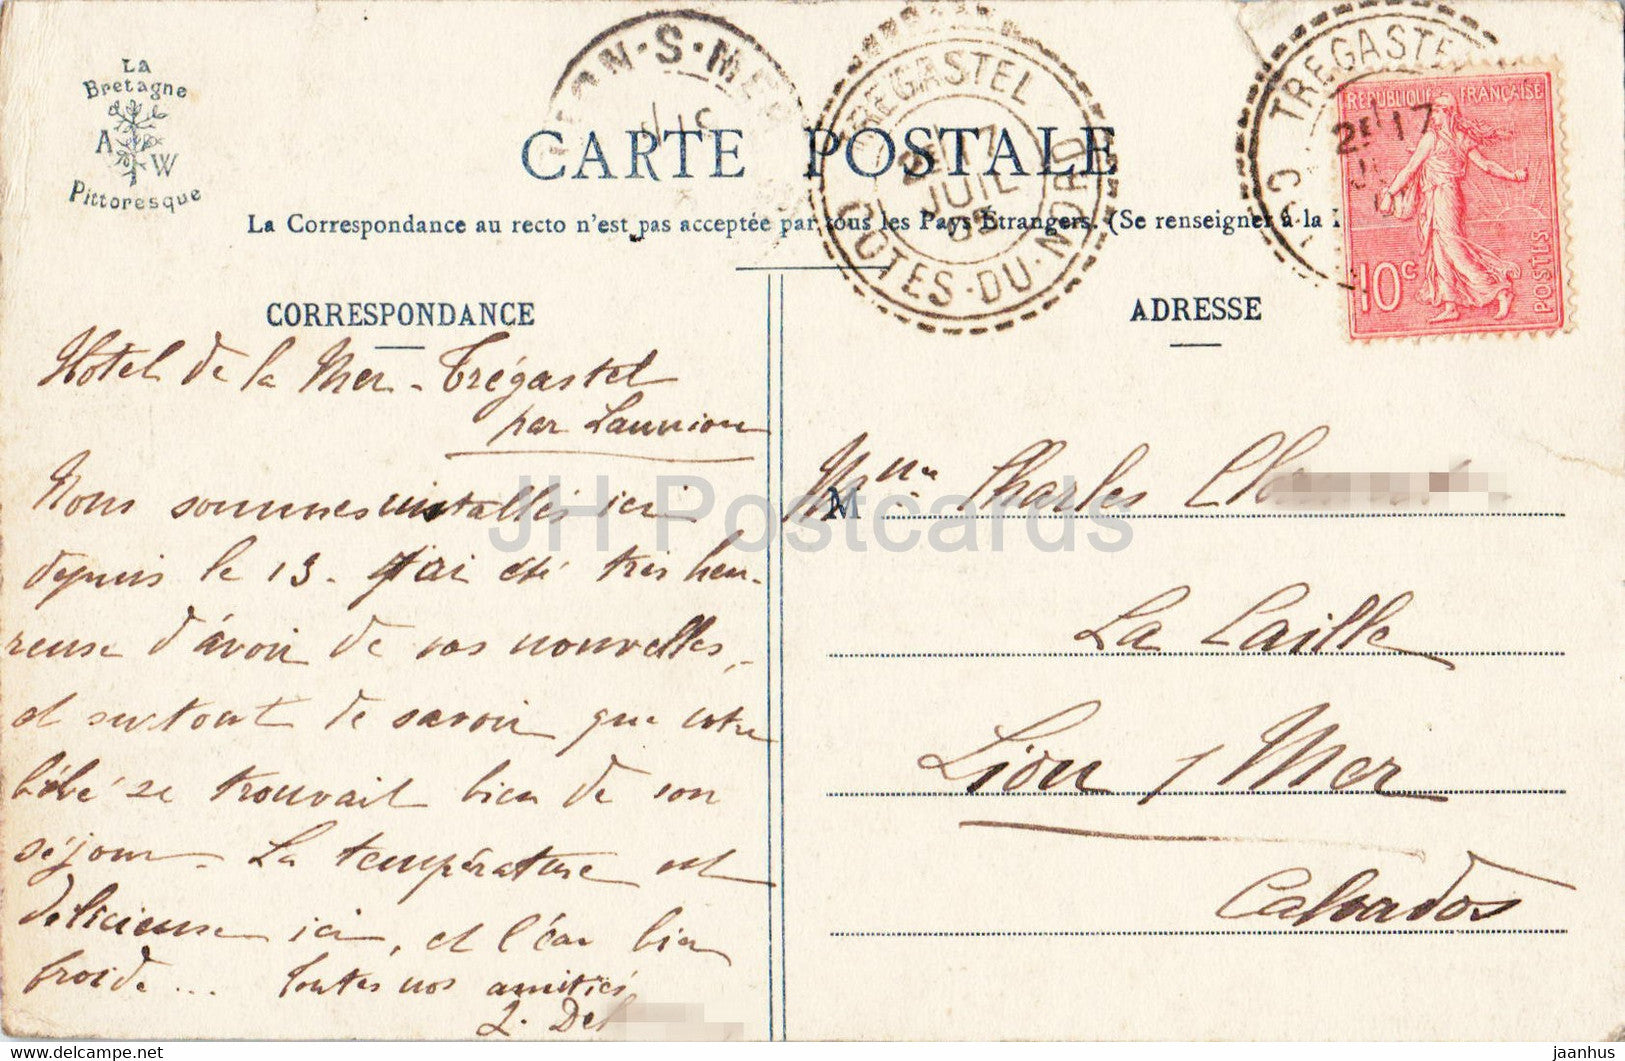 La
Bretagne
A W
Pittoresque
CARTE POSTALE
La Correspondance au recto n'est pas acceptée par tous les Pays Etrangers. (Se renseigner à la
TREGASTEL
2E 17
JUIL
05
COTES-DU-NORD
TREGASTEL
2E 17
REPUBLIQUE FRANÇAISE
10c
POSTES
CORRESPONDANCE
Hotel de la Mer - Trégastel
par Lannion
Nous sommes installés ici
depuis le 13. J'ai été très heu-
reuse d'avoir de vos nouvelles,
et surtout de savoir que votre
bébé se trouvait bien de son
séjour. La température est
délicieuse ici, et l'eau bien
froide... Toutes nos amitiés
ADRESSE
M
Mme Charles
La Caille
Lion / Mer
Calvados
JH Postcards
www.delcampe.net
jaanhus